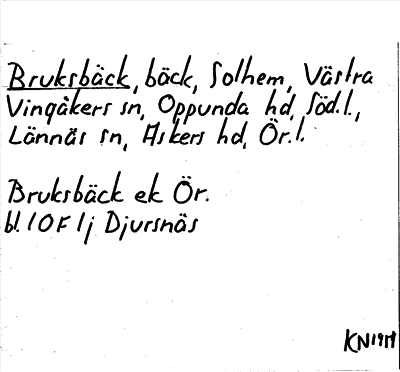 Bruksbäck, bäck, Solhem, Västra
Vingåkers sn, Oppunda hd, Söd.l.,
Lännäs sn, Askers hd, Ör.l.
Bruksbäck ek Ör.
bl. 10F 1j Djursnäs